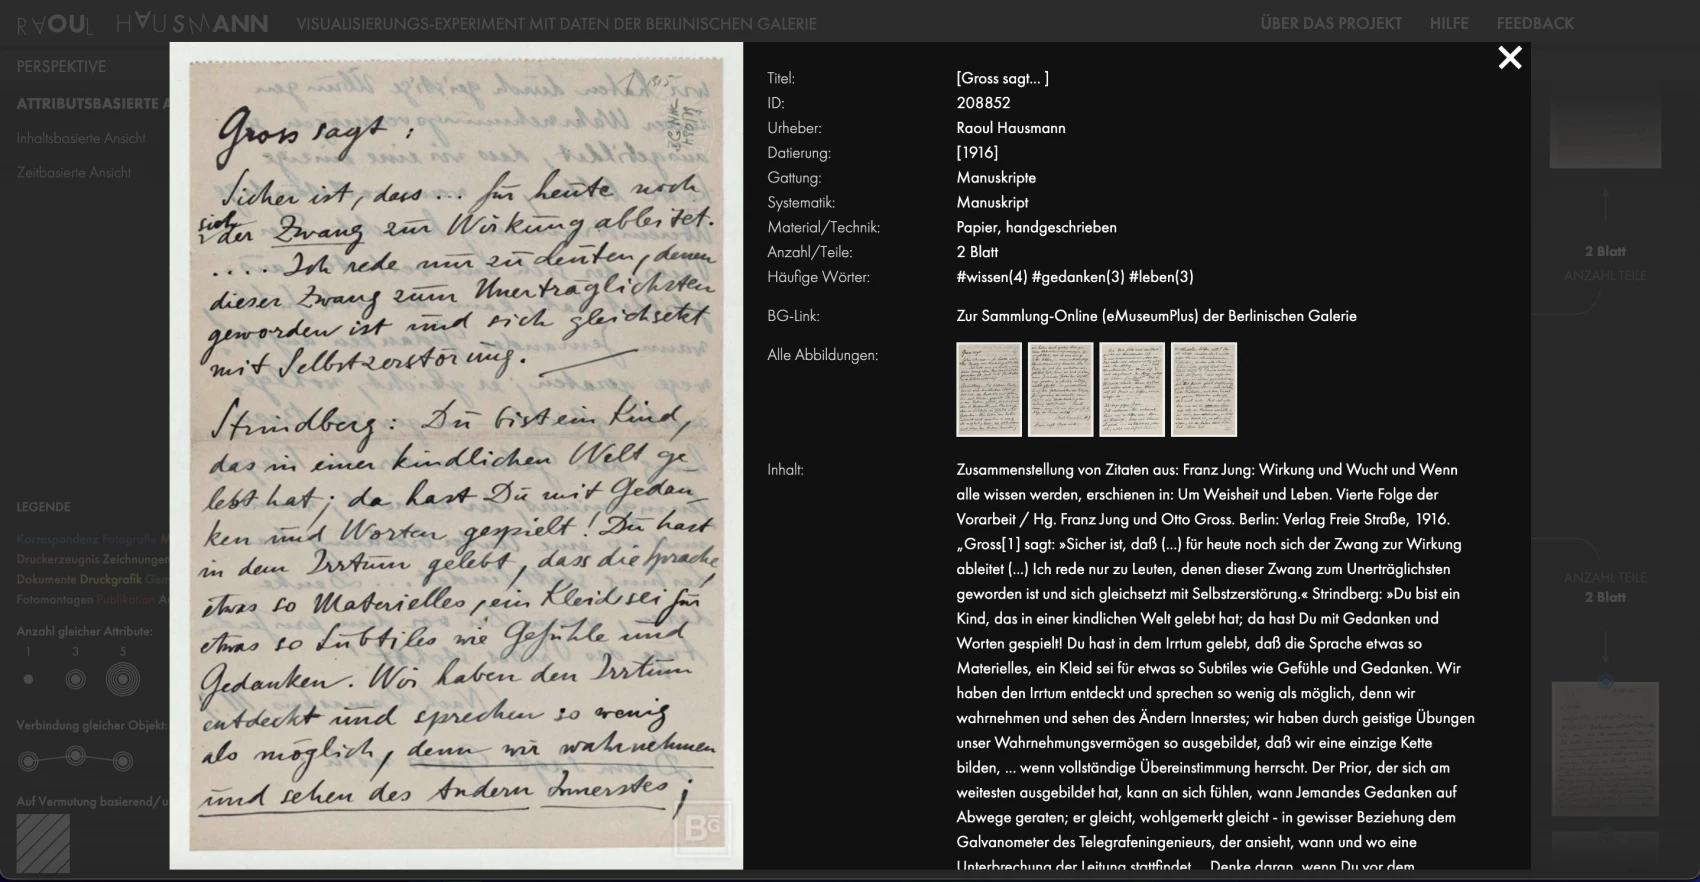 RAOUL HAUSMANN
VISUALISIERUNGS-EXPERIMENT MIT DATEN DER BERLINISCHEN GALERIE
ÜBER DAS PROJEKT
HILFE
FEEDBACK
PERSPEKTIVE
ATTRIBUTSBASIERTE A
Inhaltsbasierte Ansicht
Zeitbasierte Ansicht
LEGENDE
Korrespondenz Fotografie M
Druckerzeugnis Zeichnungen
Dokumente Druckgrafik Gem
Fotomontagen Publikation A
Anzahl gleicher Attribute:
1 3 5
Verbindung gleicher Objekt:
Auf Vermutung basierend/u
Gross sagt :
Sicher ist, dass ... für heute noch
sich
der Zwang zur Wirkung ableitet.
.... Ich rede nur zu Leuten, denen
dieser Zwang zum Unerträglichsten
geworden ist und sich gleichsetzt
mit Selbstzerstörung. —
Strindberg: Du bist ein Kind,
das in einer kindlichen Welt ge-
lebt hat; da hast Du mit Gedan-
ken und Worten gespielt! Du hast
in dem Irrtum gelebt, dass die Sprache
etwas so Materielles, ein Kleid sei für
etwas so Subtiles wie Gefühle und
Gedanken. Wir haben den Irrtum
entdeckt und sprechen so wenig
als möglich, denn wir wahrnehmen
und sehen des Andern Innerstes;
BG
Titel: [Gross sagt... ]
ID: 208852
Urheber: Raoul Hausmann
Datierung: [1916]
Gattung: Manuskripte
Systematik: Manuskript
Material/Technik: Papier, handgeschrieben
Anzahl/Teile: 2 Blatt
Häufige Wörter: #wissen(4) #gedanken(3) #leben(3)
BG-Link: Zur Sammlung-Online (eMuseumPlus) der Berlinischen Galerie
Alle Abbildungen:
Inhalt: Zusammenstellung von Zitaten aus: Franz Jung: Wirkung und Wucht und Wenn
alle wissen werden, erschienen in: Um Weisheit und Leben. Vierte Folge der
Vorarbeit / Hg. Franz Jung und Otto Gross. Berlin: Verlag Freie Straße, 1916.
„Gross[1] sagt: »Sicher ist, daß (...) für heute noch sich der Zwang zur Wirkung
ableitet (...) Ich rede nur zu Leuten, denen dieser Zwang zum Unerträglichsten
geworden ist und sich gleichsetzt mit Selbstzerstörung.« Strindberg: »Du bist ein
Kind, das in einer kindlichen Welt gelebt hat; da hast Du mit Gedanken und
Worten gespielt! Du hast in dem Irrtum gelebt, daß die Sprache etwas so
Materielles, ein Kleid sei für etwas so Subtiles wie Gefühle und Gedanken. Wir
haben den Irrtum entdeckt und sprechen so wenig als möglich, denn wir
wahrnehmen und sehen des Ändern Innerstes; wir haben durch geistige Übungen
unser Wahrnehmungsvermögen so ausgebildet, daß wir eine einzige Kette
bilden, ... wenn vollständige Übereinstimmung herrscht. Der Prior, der sich am
weitesten ausgebildet hat, kann an sich fühlen, wann Jemandes Gedanken auf
Abwege geraten; er gleicht, wohlgemerkt gleicht - in gewisser Beziehung dem
Galvanometer des Telegrafeningenieurs, der ansieht, wann und wo eine
Unterbrechung der Leitung stattfindet... Denke daran, wenn Du vor dem
2 Blatt
ANZAHL TEILE
ANZAHL TEILE
2 Blatt